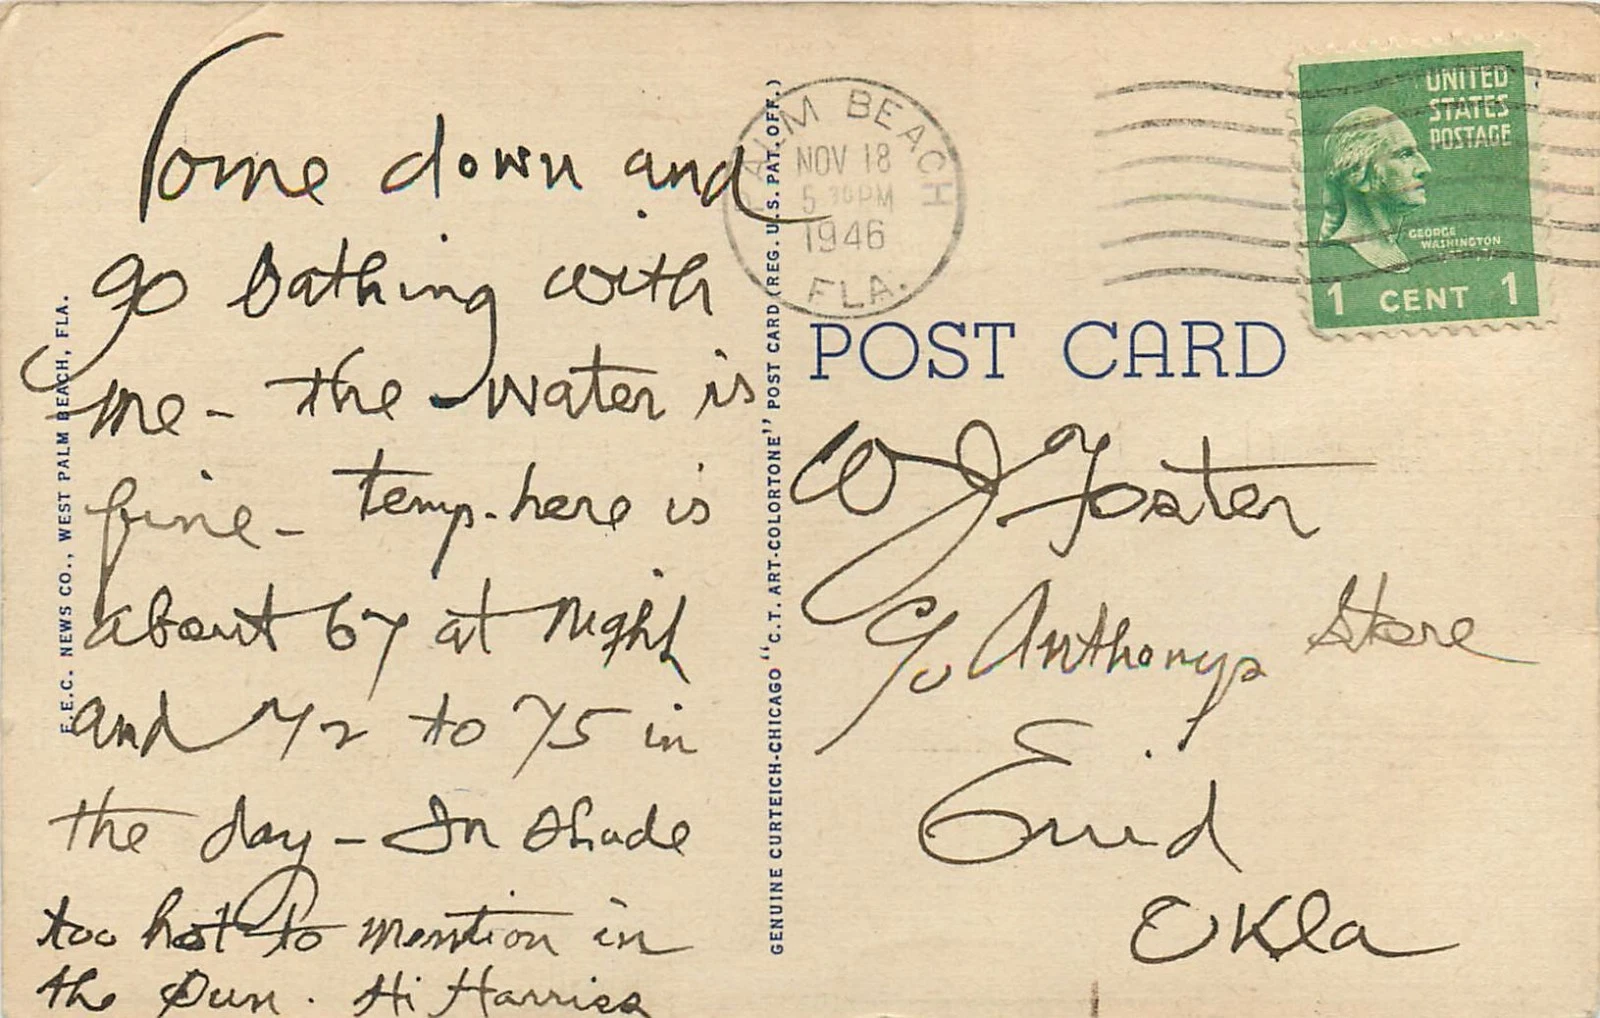 Come down and
go bathing with
me - the water is
fine - temp. here is
about 67 at night
and 72 to 75 in
the day - In shade
too hot to mention in
the sun. Hi Harries
F.E.C. NEWS CO., WEST PALM BEACH, FLA.
GENUINE CURTEICH-CHICAGO "C.T. ART-COLORTONE" POST CARD (REG. U.S. PAT. OFF.)
PALM BEACH
NOV 18
5 30 PM
1946
FLA.
UNITED
STATES
POSTAGE
GEORGE
WASHINGTON
1 CENT 1
POST CARD
W J Foster
c/o Anthonys Store
Enid
Okla